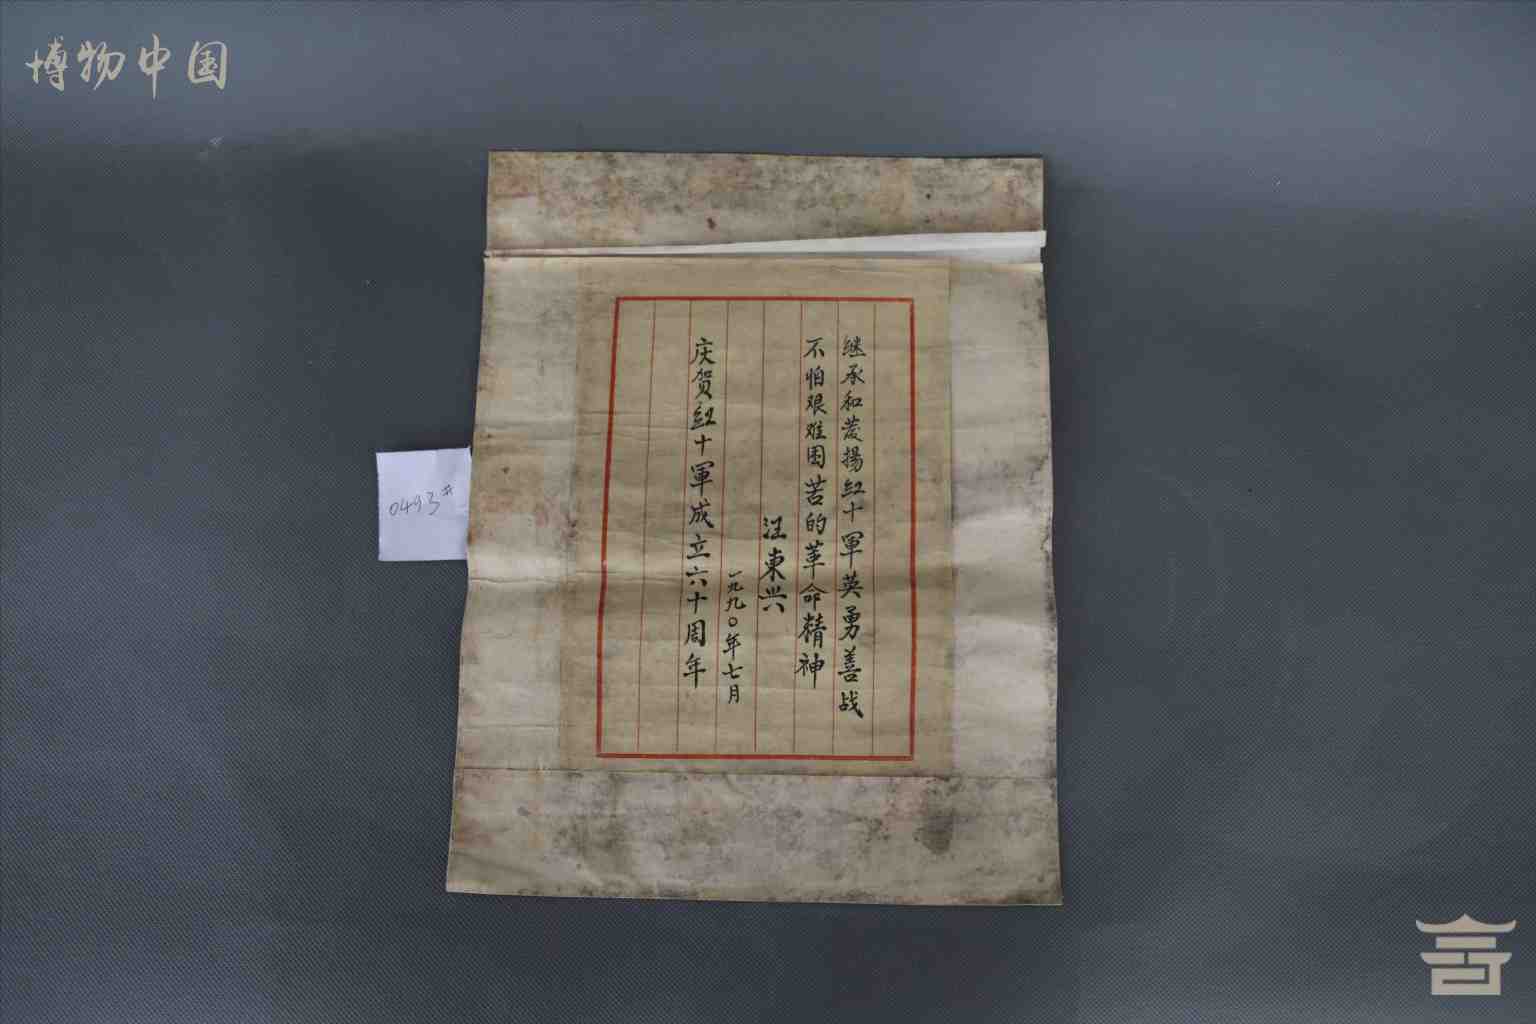 博物中国
继承和发揚红十軍英勇善战
不怕艰难困苦的革命精神
汪東兴
一九九〇年七月
庆贺红十軍成立六十周年
0493#